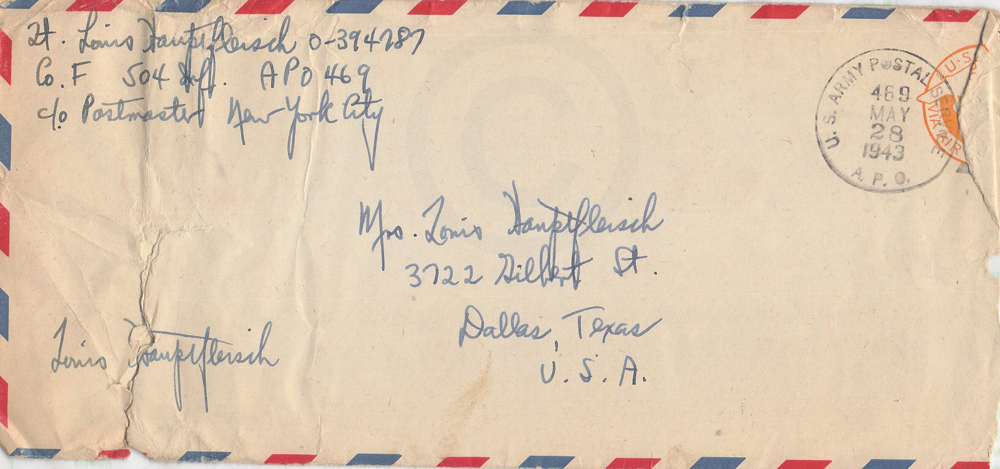 Lt. Louis Hauptfleisch O-394787
Co. F 504 Inf. APO 469
c/o Postmaster New York City
U. S. ARMY POSTAL
469
MAY
28
1943
A. P. O.
U.S.
VIA AIR
Mrs. Louis Hauptfleisch
3722 Gilbert St.
Dallas, Texas
U. S. A.
Louis Hauptfleisch